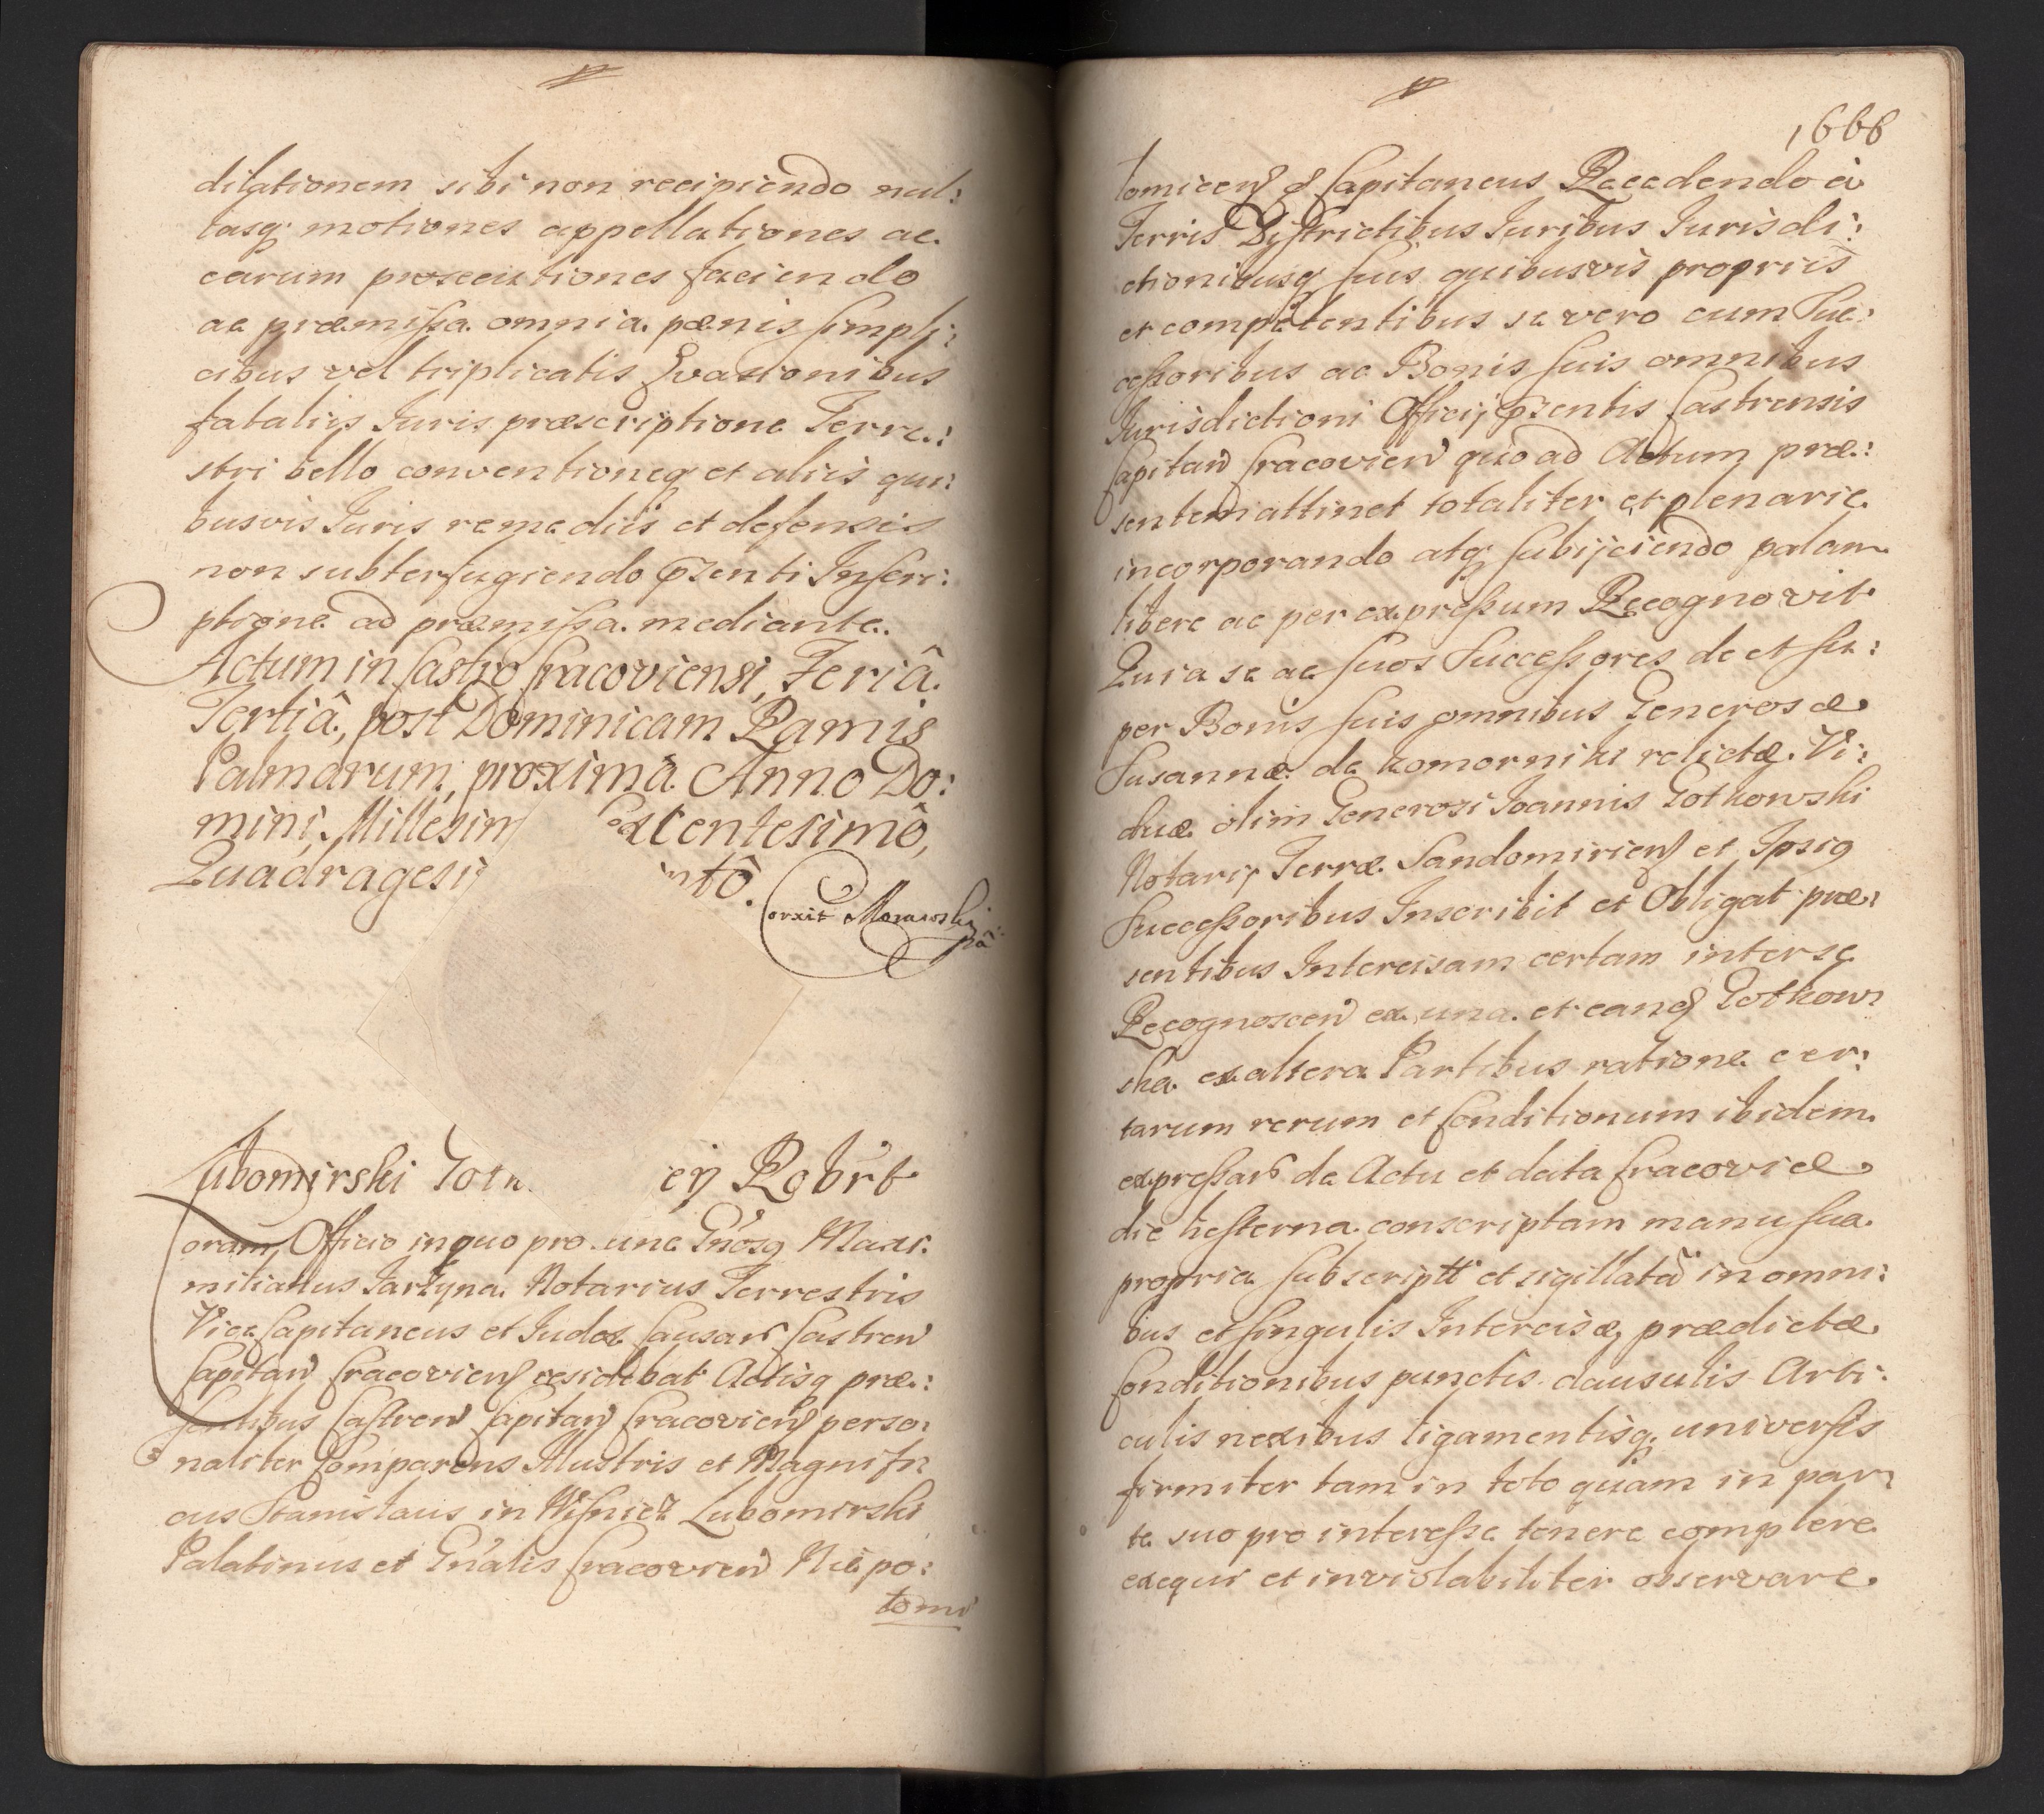 dilationem sibi non recipiendo nul:
lasq motiones appellationes ac
earum prosecutiones faciendo
ac præmissa omnia pænis simpli:
cibus vel triplicatis Evasionibus
fatalijs Juris præscriptione Terre:
stri bello conventioneq et aliis qui:
busvis Juris remediis et defensis
non subterfugiendo pzenti Inscri:
ptione ad præmissa mediante.
Actum in Castro Cracoviensi, Feriâ
Tertiâ, post Dominicam Ramis
Palmarum, proxima Anno Do:
mini, Millesim excentesimô,
Quadragesi ntô.
Corxit Morawski
Lubomirski ey Robŕt
oram Officio in quo pro unc Gńosq Maxi:
milianus Jartÿna Notarius Terrestris
Vice Capitaneus et Judex Causar Castren
Capitan Cracovien residebat Actisq præ:
sentibus Castren Capitan Cracovien perso:
naliter Comparens Illustris et Magnifi:
cus Stanislaus in Wisnicz Lubomirski
Palatinus et Gńalis Cracovien Niepo:
tomi
1666
tomicen Capitaneus Recedendo à
Terris Districtibus Juribus Jurisdi:
ctionibusq suis quibusvis propriis
et competentibus se vero cum Suc:
cessoribus ac Bonis suis omnibus
Jurisdictioni Officij pzentis Castrensis
Capitan Cracovien quo ad Actum præ:
sentem attinet totaliter et plenarie
incorporando atq subijciendo palam
libere ac per expressum Recognovit
Quia se ac suos Successores de et su:
per Bonis suis omnibus Generosæ
Susannæ de Komorniki relictæ Vi:
duæ olim Generosi Joannis Gotkowski
Notarij Terræ Sandomirien et Ipsiq
Successoribus Inscribit et Obligat præ:
sentibus Intercisam certam inter se
Recognoscen ex una et eand Gotkow:
ska ex altera Partibus ratione cer:
tarum rerum et Conditionum ibidem
expressar de Actu et data Cracoviæ
die hesterna conscriptam manu sua
propria subscriptt et sigillatã in omni:
bus et singulis Intercisæ prædictæ
Conditionibus punctis clausulis Arti:
culis nexibus ligamentisq universis
firmiter tam in toto quam in par:
te suo pro interesse tenere complere
exequi et inviolabiliter observare